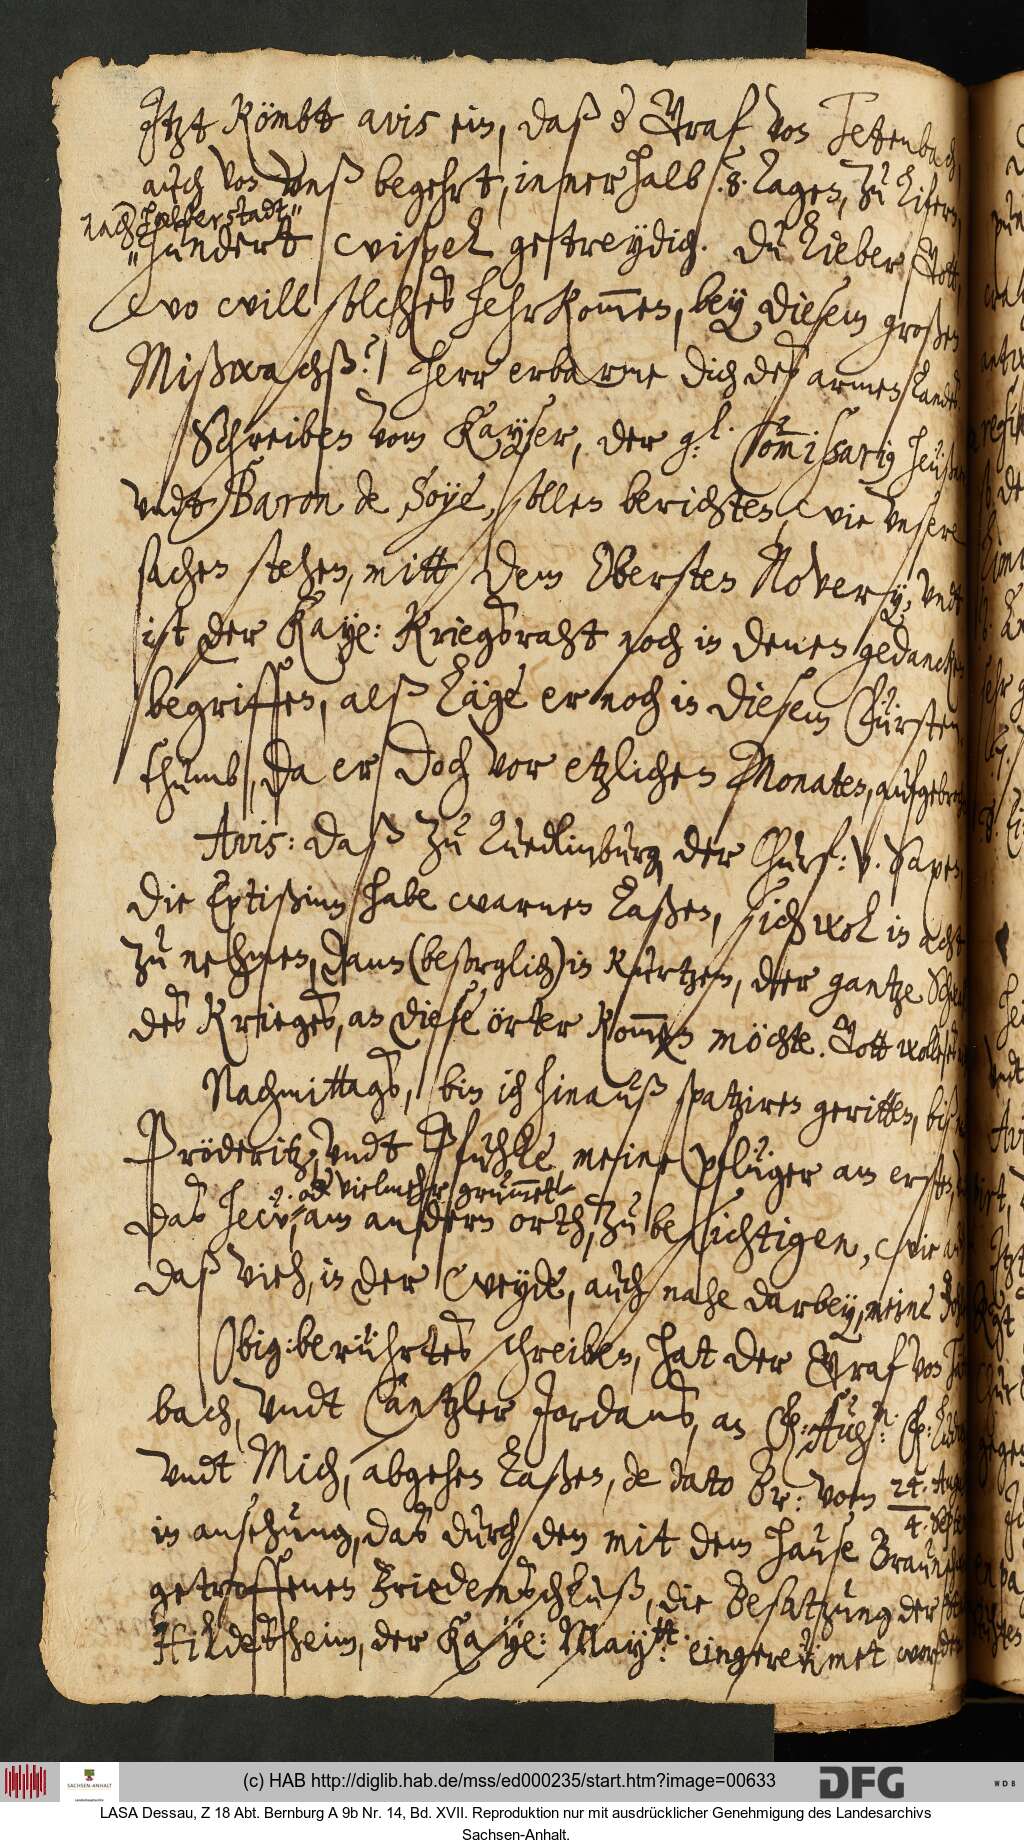 Itzt kömbt avis ein, daß der Graf von Tettenbach
auch von vnß begehrt, innerhalb .8. tagen, zu lifern,
nach Halberstadt
hundert wispel getreydich. Du lieber Gott,
wo will solches hehr kommen, bey diesem großen
Mißwachß? / Herr erbarme dich des armen landes.
Schreiben vom Kayser, der g: Commissarius Heußner
vndt Baron de Soye, sollen berichten, wie vnsere
sachen stehen, mitt dem Obersten Rovery, vndt
ist der Kaye: Kriegsraht noch in denen gedancken
begriffen, alß läge er noch in diesem Fürsten
thumb, da er doch vor etzlichen Monaten, aufgebrochen
Avis: daß zu Quedlinburg der Churf: v. Saxen
die Eptißinn habe warnen laßen, sich wol in acht
zu nehmen, dann (besorglich) in kurtzem, der gantze
des Krieges, an diese örter kommen möchte. Gott wolle
Nachmittags, bin ich hinauß spatziren geritten, biß
Pröderitz, vndt Pfuhle, meine pflüger am ersten,
2. oder vielmehr grummet
das hew, am andern orth, zu besichtigen, wie auch
daß vieh, in der weyde, auch nahe darbey, meine
Obig: berührtes schreiben, hat der Graf von Tätten
bach, vndt Cantzler Jordans, an F: Aug: F: Ludwig
vndt Mich, abgehen laßen, de dato Br: vom 24. Aug
4. Sept
in ansehung, das durch den mit dem hause Braunschw
getroffenen Friedensschluß, die Besatzung der
Hildesheim, der Kaye: Maytt: eingereümet worden
(c) HAB http://diglib.hab.de/mss/ed000235/start.htm?image=00633
DFG
WDB
SACHSEN-ANHALT
LASA Dessau, Z 18 Abt. Bernburg A 9b Nr. 14, Bd. XVII. Reproduktion nur mit ausdrücklicher Genehmigung des Landesarchivs
Sachsen-Anhalt.